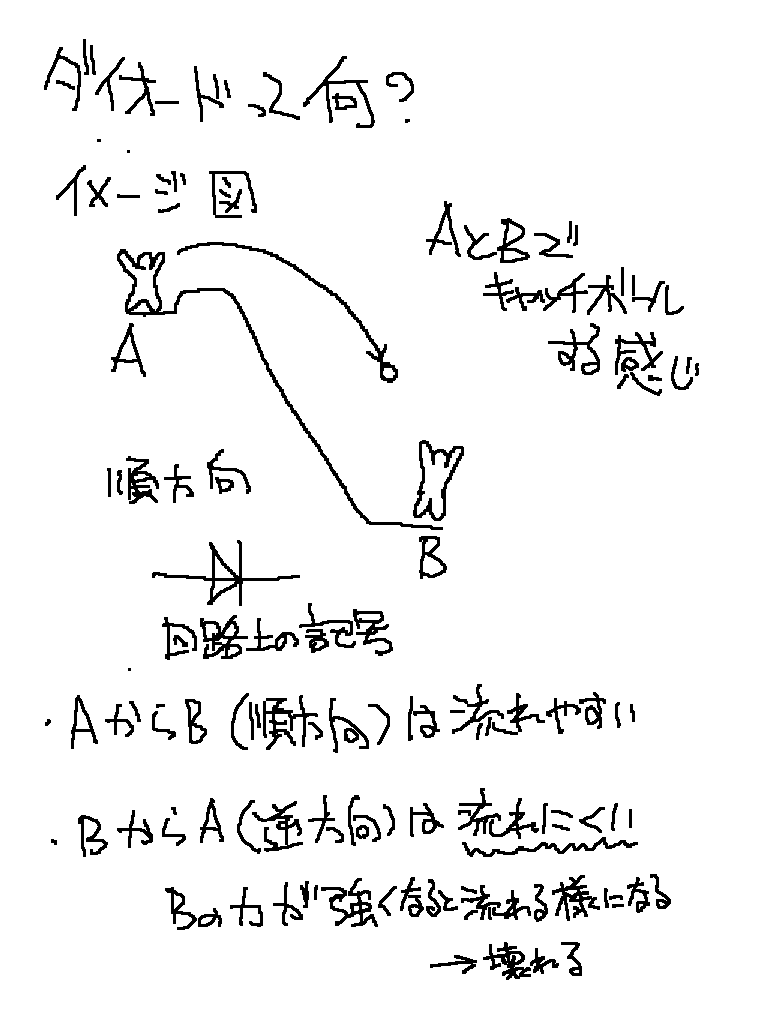 ダイオードって何?
イメージ図
AとBで
キャッチボール
する感じ
A
順方向
B
回路上の記号
・AからB(順方向)は流れやすい
・BからA(逆方向)は流れにくい
Bの力が強くなると流れる様になる
→壊れる